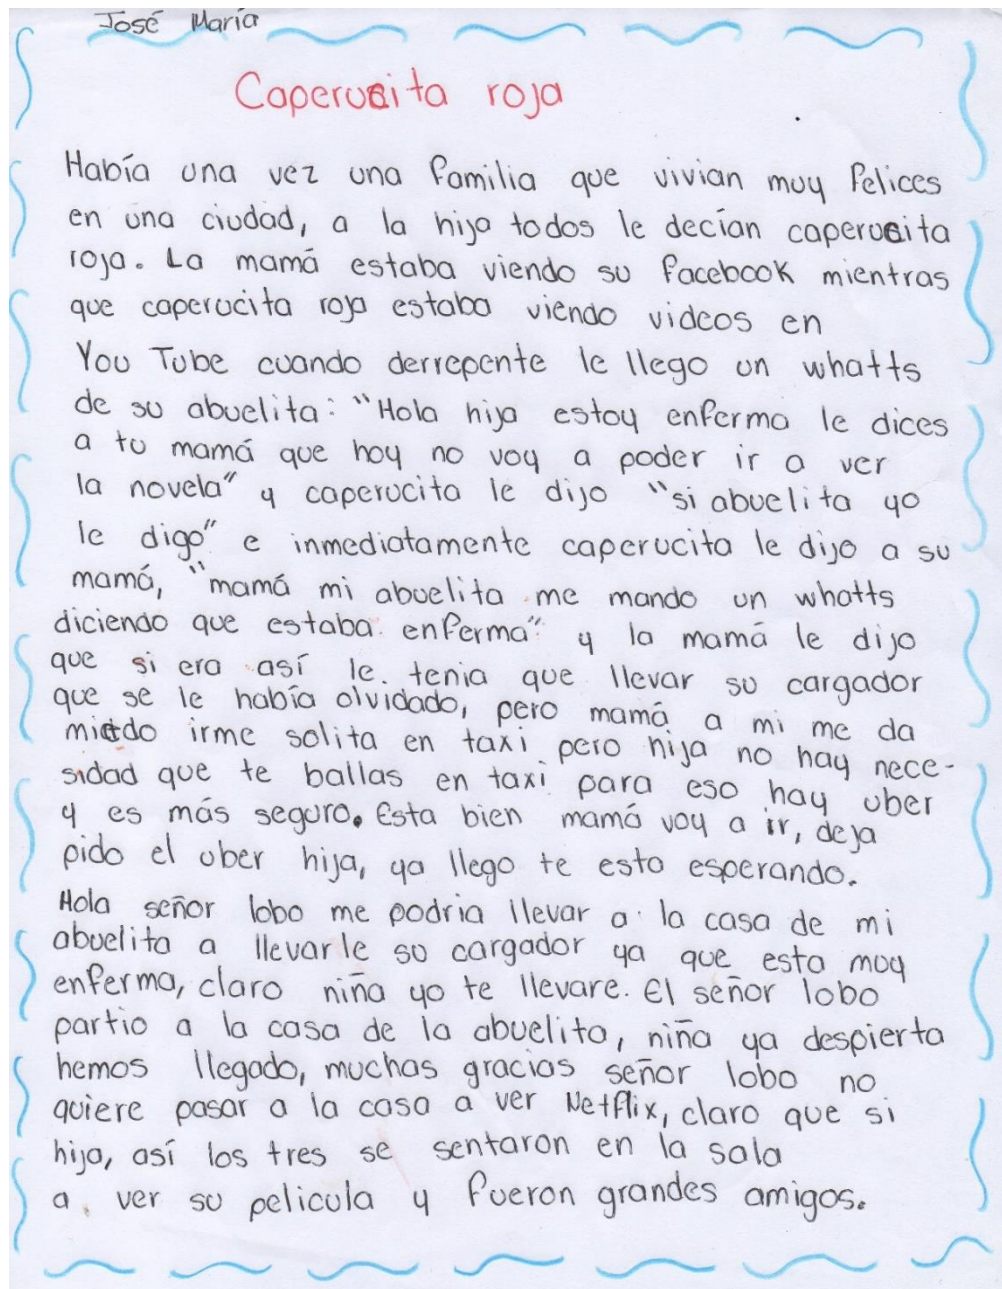 José María
Caperucita roja
Había una vez una familia que vivian muy felices
en una ciudad, a la hija todos le decían caperucita
roja. La mamá estaba viendo su facebook mientras
que caperucita roja estaba viendo videos en
You Tube cuando derrepente le llego un whatts
de su abuelita: "Hola hija estoy enferma le dices
a tu mamá que hoy no voy a poder ir a ver
la novela" y caperucita le dijo "si abuelita yo
le digo" e inmediatamente caperucita le dijo a su
mamá, "mamá mi abuelita me mando un whatts
diciendo que estaba enferma" y la mamá le dijo
que si era así le tenia que llevar su cargador
que se le había olvidado, pero mamá a mi me da
miedo irme solita en taxi pero hija no hay nece-
sidad que te ballas en taxi para eso hay uber
y es más seguro. Esta bien mamá voy a ir, deja
pido el uber hija, ya llego te esta esperando.
Hola señor lobo me podria llevar a la casa de mi
abuelita a llevarle su cargador ya que esta muy
enferma, claro niña yo te llevare. El señor lobo
partio a la casa de la abuelita, niña ya despierta
hemos llegado, muchas gracias señor lobo no
quiere pasar a la casa a ver Netflix, claro que si
hija, así los tres se sentaron en la sala
a ver su pelicula y fueron grandes amigos.